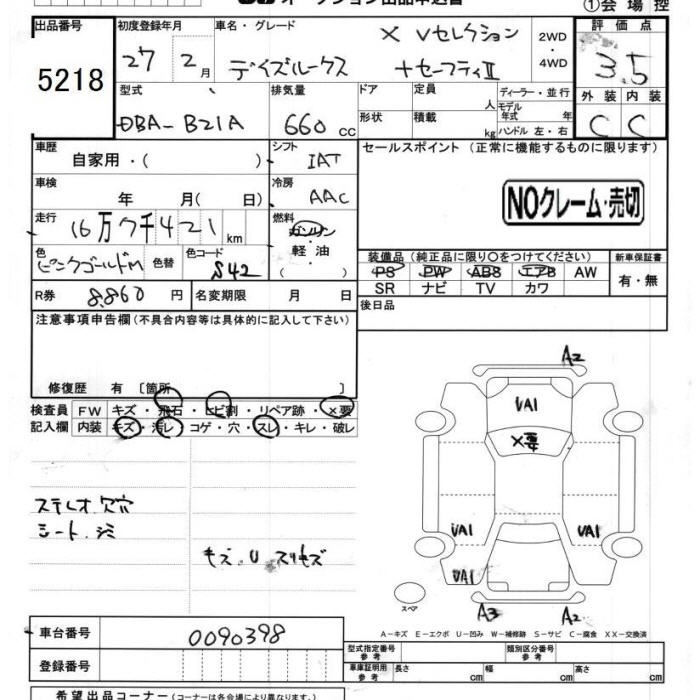 オークション出品申込書
①会場控
出品番号
5218
初度登録年月
27 2月
車名・グレード
X Vセレクション
デイズルークス +セーフティII
2WD
・
4WD
評価点
3.5
外装 内装
C C
型式
DBA-B21A
排気量
660 cc
ドア
定員
人
形状
積載
kg
ディーラー・並行
モデル年式 年
ハンドル 左・右
車歴
自家用・( )
シフト
IAT
車検
年 月( 日)
冷房
AAC
走行
16万7千421km
燃料
ガソリン
・
軽油
( )
色
ピンクゴールドM
色替
色コード
S42
R券
8,860円
名変期限 月 日
セールスポイント (正常に機能するものに限ります)
NOクレーム・売切
装備品 (純正品に限り○をつけてください)
PS PW ABS エアB AW
SR ナビ TV カワ
新車保証書
有・無
後日品
注意事項申告欄(不具合内容等は具体的に記入して下さい)
修復歴 有 [箇所 ]
検査員 FW キズ・飛石・ヒビ割・リペア跡・×要
記入欄 内装 キズ・汚レ・コゲ・穴・スレ・キレ・破レ
ステレオ欠穴
シート シミ
キズ.U スリキズ
A2
UA1
×要
UA1 UA1
UA1
スペア
A3 A2
A-キズ E-エクボ U-凹み W-補修跡 S-サビ C-腐食 XX-交換済
車台番号
0090398
登録番号
型式指定番号
参考
類別区分番号
参考
車庫証明用
参考
長さ cm 幅 cm 高さ cm
希望出品コーナー (コーナーは各会場により異なります。)